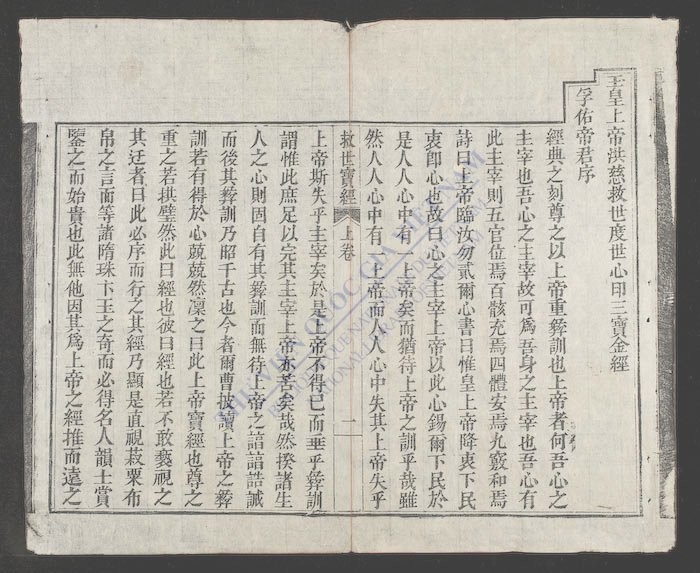 玉皇上帝洪慈救世度世心印三寶金經
孚佑帝君序
經典之刻尊之以上帝重彜訓也上帝者何吾心之
主宰也吾心之主宰故可爲吾身之主宰也吾心有
此主宰則五官位焉百骸充焉四體安焉九竅和焉
詩曰上帝臨汝勿貳爾心書曰惟皇上帝降衷下民
衷卽心也故曰心之主宰上帝以此心錫爾下民於
是人人心中有一上帝矣而猶待上帝之訓乎哉雖
然人人心中有一上帝而人人心中失其上帝失乎
救世寶經 上卷 一
上帝斯失乎主宰矣於是上帝不得已而垂乎彜訓
謂惟此庶足以完其主宰上帝亦苦矣哉然揆諸生
人之心則固自有其彜訓而無待上帝之諄諄誥誡
而後其彜訓乃昭千古也今者爾曹披讀上帝之彜
訓若有得於心兢兢然凜之曰此上帝寶經也尊之
重之若拱璧然此曰經也彼曰經也若不敢褻視之
其迂者曰此必序而行之其經乃顯是直視菽粟布
帛之言而等諸隋珠卞玉之奇而必得名人韻士賞
鑒之而始貴也此無他因其爲上帝之經推而遠之
THƯ VIỆN QUỐC GIA VIỆT NAM